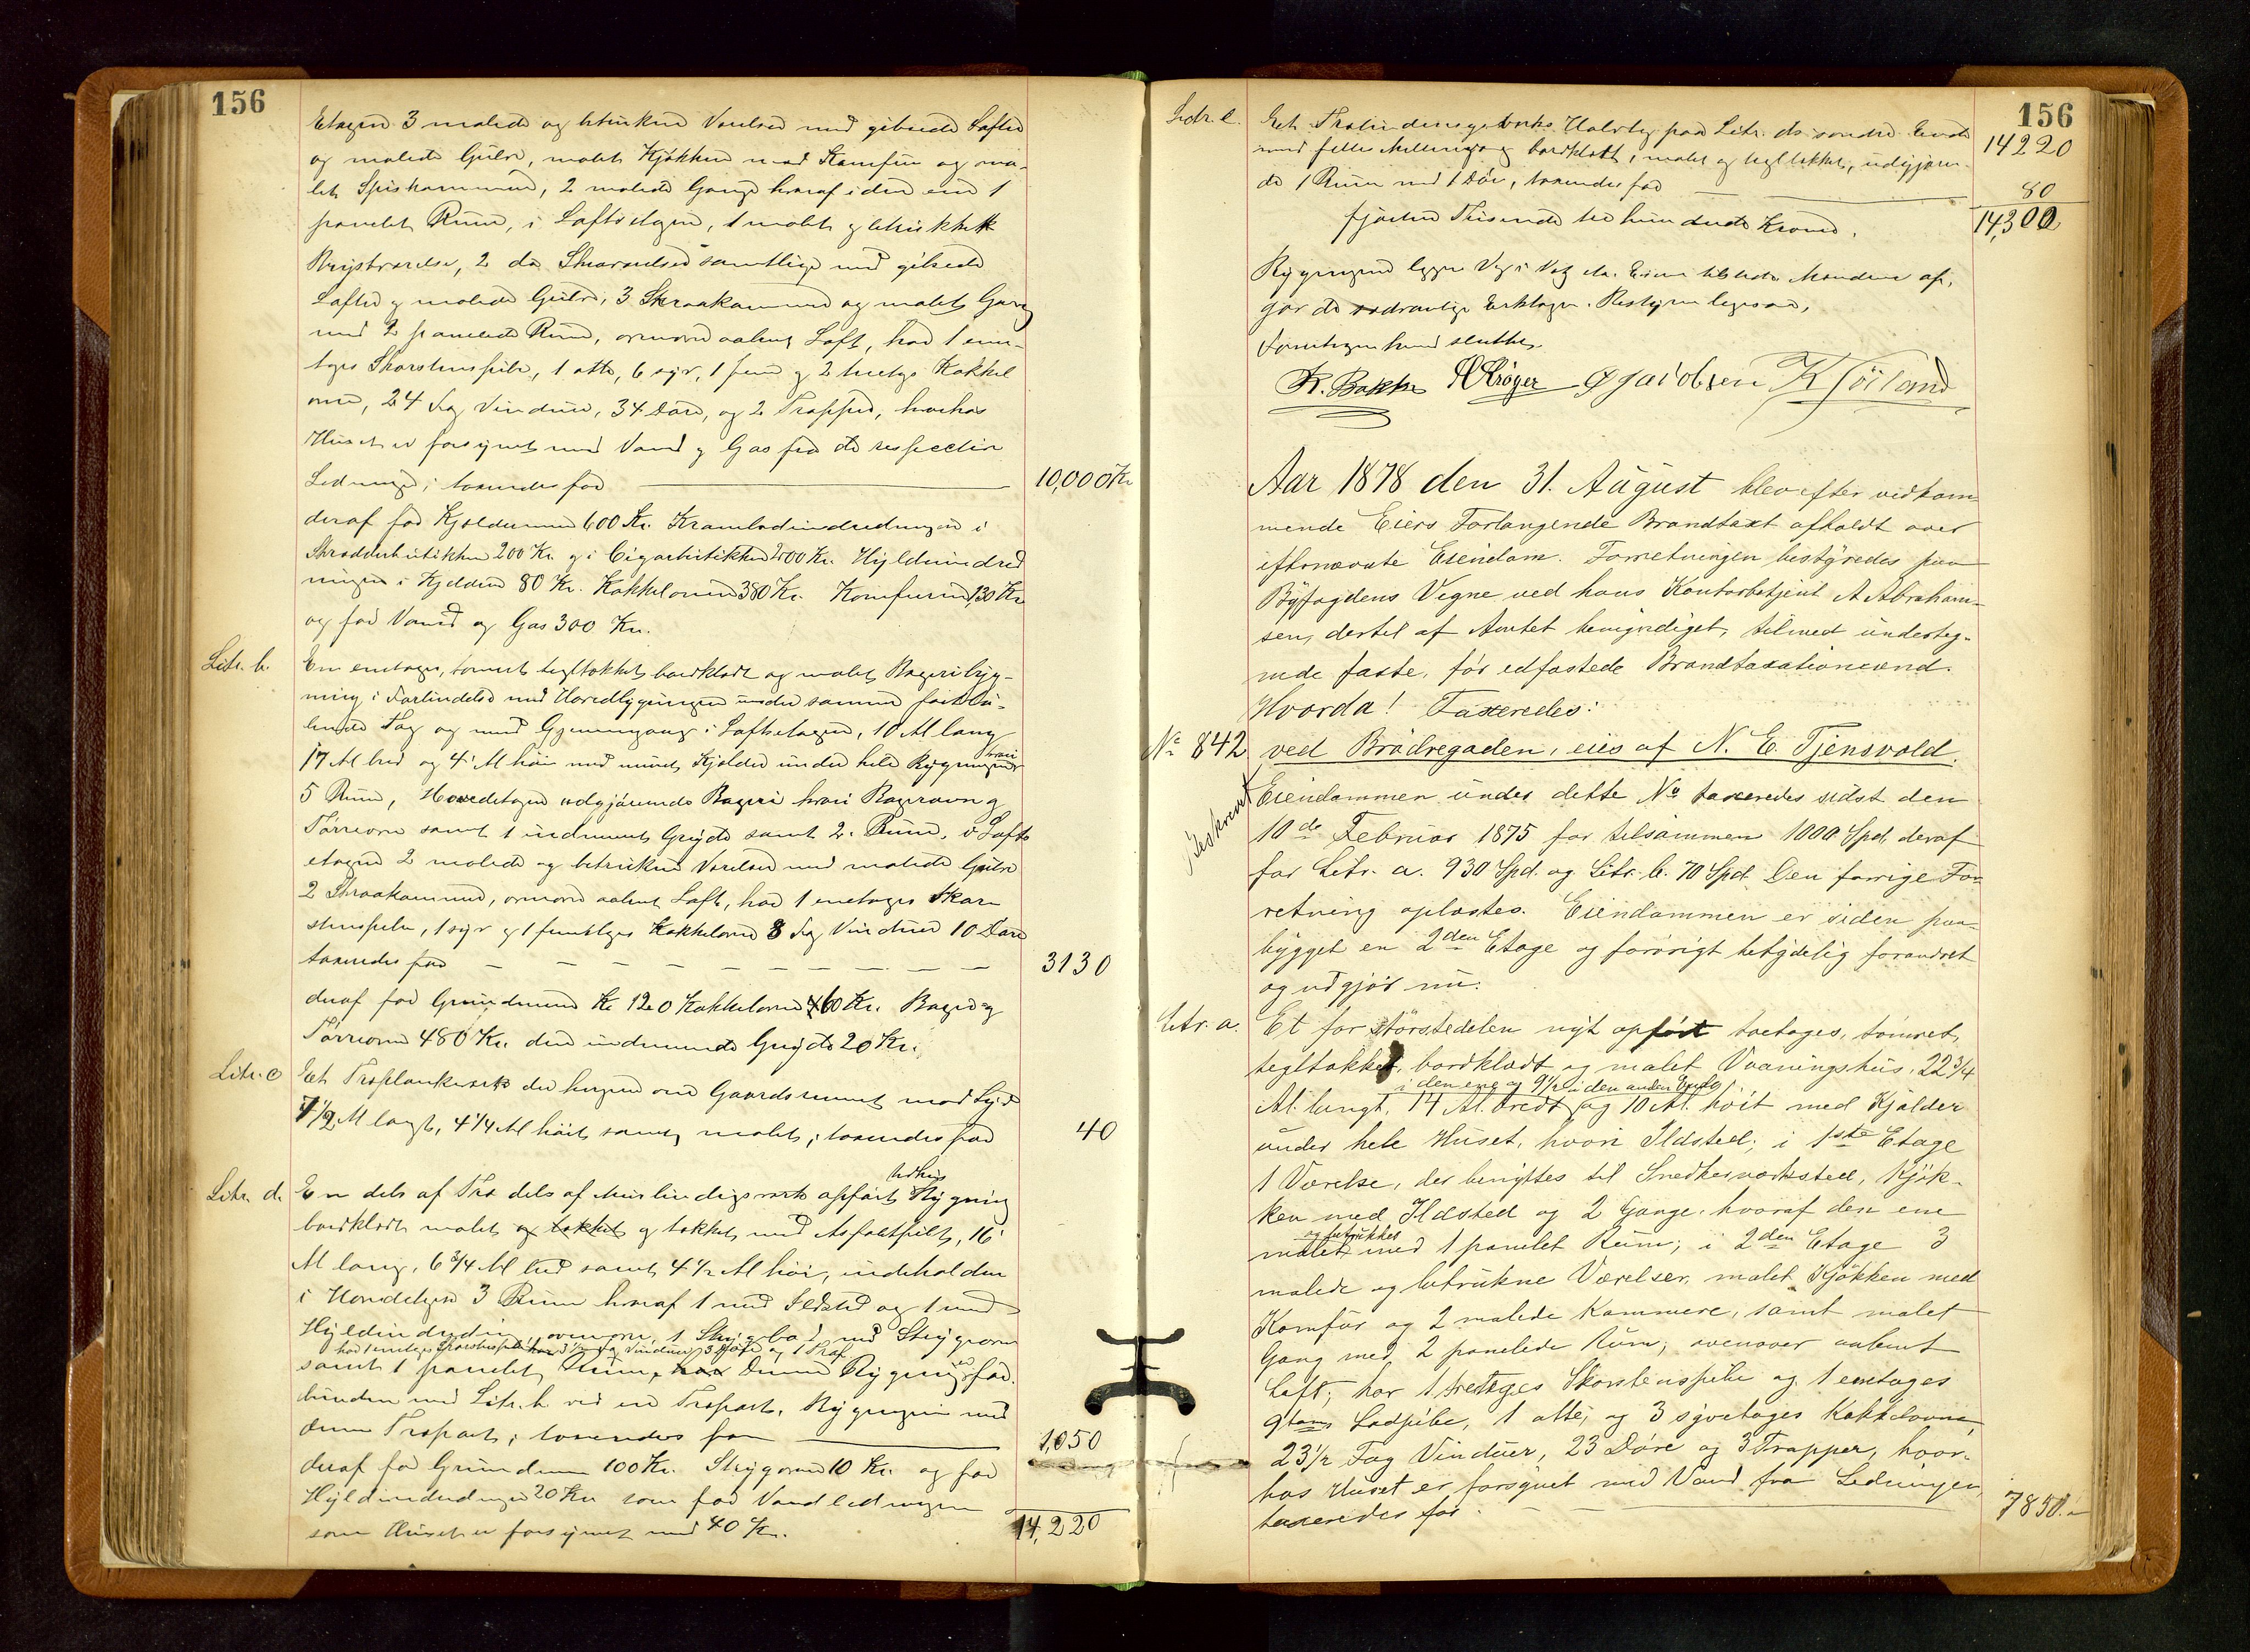 156
Etagen 3 malede og betrukne Værelser med gibsede Lofter
og malede Gulve, malet Kjøkken med Komfur og ma-
let Spiskammer, 2 malede Gange hvoraf i den ene 1
panelet Rum, i Loftsetagen, 1 malet og betrukket
Kvistværelse, 2 do Skraaværelser samtlige med gibsede
Lofter og malede Gulve, 3 Skraakammere og malet Gang
med 2 panelede Rum, ovenover aabent Loft, har 1 een-
tages Skorstenspibe, 1 otte, 6 syv, 1 fem og 2 tretages Kakkel
ovne, 24 Fag Vinduer, 34 Døre, og 2 Trapper, hvorhos
Huset er forsynet med Vand og Gas fra de respective
Ledninger; taxeredes for
10,000 Kr
deraf for Kjælderen 600 Kr. Krambodindredningen i
Skrædderbutikken 200 Kr. og i Cigarbutikken 200 Kr. Hyldeindred
ningen i Kjelderen 80 Kr. Kakkelovnene 380 Kr. Komfuren 130 Kr
og for Vand og Gas 300 Kr.
Litr. b.
En eentages, tømret tegltækket bordklædt og malet Bageribyg-
ning i Forbindelse med Hovedbygningen under samme
Tag og med Gjennemgang i Loftsetagen, 10 Al lang
17 Al bred og 4 Al høi med muret Kjælder under hele Bygningen hvori
5 Rum, Hovedetagen udgjørende Bageri hvori Bagerovn og
Tørreovn samt 1 indmuret Gryde samt 2 Rum, i Lofts
etagen 2 malede og betrukne Værelser med malede Gulve
2 Skraakammere, ovenover aabent Loft, har 1 eentages Skor
stenspibe, 1 syv og 1 femetages Kakkelovne 8 Fag Vinduer 10 Døre
taxeredes for
3130
deraf for Grundmuren Kr 120 Kakkelovne 60 Kr. Bager og
Tørreovne 480 Kr. den indmurede Gryde 20 Kr.
Litr. c
Et Træplankeværk der hegner om Gaardsrummet mod Syd
7 1/2 Al langt, 4 1/4 Al høit samt malet; taxeredes for
40
Litr. d.
En dels af Træ dels af Murbindingsværk opført Udhus Bygning
bordklædt malet og tækket og tækket med Asfaltfilt, 16
Al lang, 6 3/4 Al bred samt 4 1/2 Al høi, indeholden
i Hovedetagen 3 Rum hvoraf 1 med Ildsted og 1 med
Hyldindredning, ovenover 1 med Strygeovn
har 1 eentages Skorstenspibe, 3 1/2 Fag Vinduer, 3 Døre og 1 Trap.
samt 1 panelet Rum, har Denne Bygning er for
bunden med Litr. b ved en Træport. Bygningen med
denne Træport; taxeredes for
1,050
deraf for Grundmuren 100 Kr. Strygeovn 10 Kr. og for
Hyldindredningen 20 Kr som for Vandledningen
som Huset er forsynet med 40 Kr.
14,220
156
Litr. e.
Et Træbindingsværks Halvtag paa Litr. d's søndre Ende
med bordklædt, malet og tegltækket, udgjøren-
de 1 Rum med 1 Dør, taxeredes for
14220
80
14,300
fjorten Tusinde tre hundrede Kroner.
Bygningerne ligger Væg i Væg etc. Eieren tilstede Mændene af,
gav de sædvanlige Erklæringer. Bestyreren ligesaa,
Forretningen hermed sluttet.
K. Bakke H Krøger G Jacobsen K Sørland
Aar 1878 den 31. August blev efter vedkom
mende Eiers Forlangende Brandtaxt afholdt over
efternævnte Eiendom. Forretningen bestyredes paa
Byfogdens Vegne ved hans Kontorbetjent A Abraham-
sen, dertil af Amtet bemyndiget, tilmed underteg-
nede faste, før edfæstede Brandtaxationsmænd.
Hvorda! Taxeredes:
No 842 ved Brødregaden, eies af N. E. Tjensvold.
beskrevet
Eiendommen under dette No taxeredes sidst den
10de Februar 1875 for tilsammen 1000 Spd, deraf
for Litr. a. 930 Spd. og Litr. b. 70 Spd. Den forrige For
retning oplæstes. Eiendommen er siden paa-
bygget en 2den Etage og forøvrigt betydelig forandret
og udgjør nu:
Litr. a.
Et for størstedelen nyt opført toetages, tømret,
tegltækket, bordklædt og malet Vaaningshus, 22 3/4
i den ene og 9 1/2 i den anden Ende
Al. langt, 14 Al. bredt og 10 Al. høit med Kjælder
under hele Huset, hvori Ildsted; i 1ste Etage
1 Værelse, der benyttes til Snedkerværksted, Kjøk-
ken med Ildsted og 2 Gange, hvoraf den ene
og betrukket
malet med 1 panelet Rum; i 2den Etage 3
malede og betrukne Værelser, malet Kjøkken med
Komfur og 2 malede Kammere, samt malet
Gang med 2 panelede Rum; ovenover aabent
Loft; har 1 tretages Skorstenspibe og 1 eentages
Lodpibe, 1 otte, og 3 syvetages Kakkelovne,
23 1/2 Fag Vinduer, 23 Døre og 3 Trapper, hvor-
hos Huset er forsynet med Vand fra Ledningen,
taxeredes for
7850.-